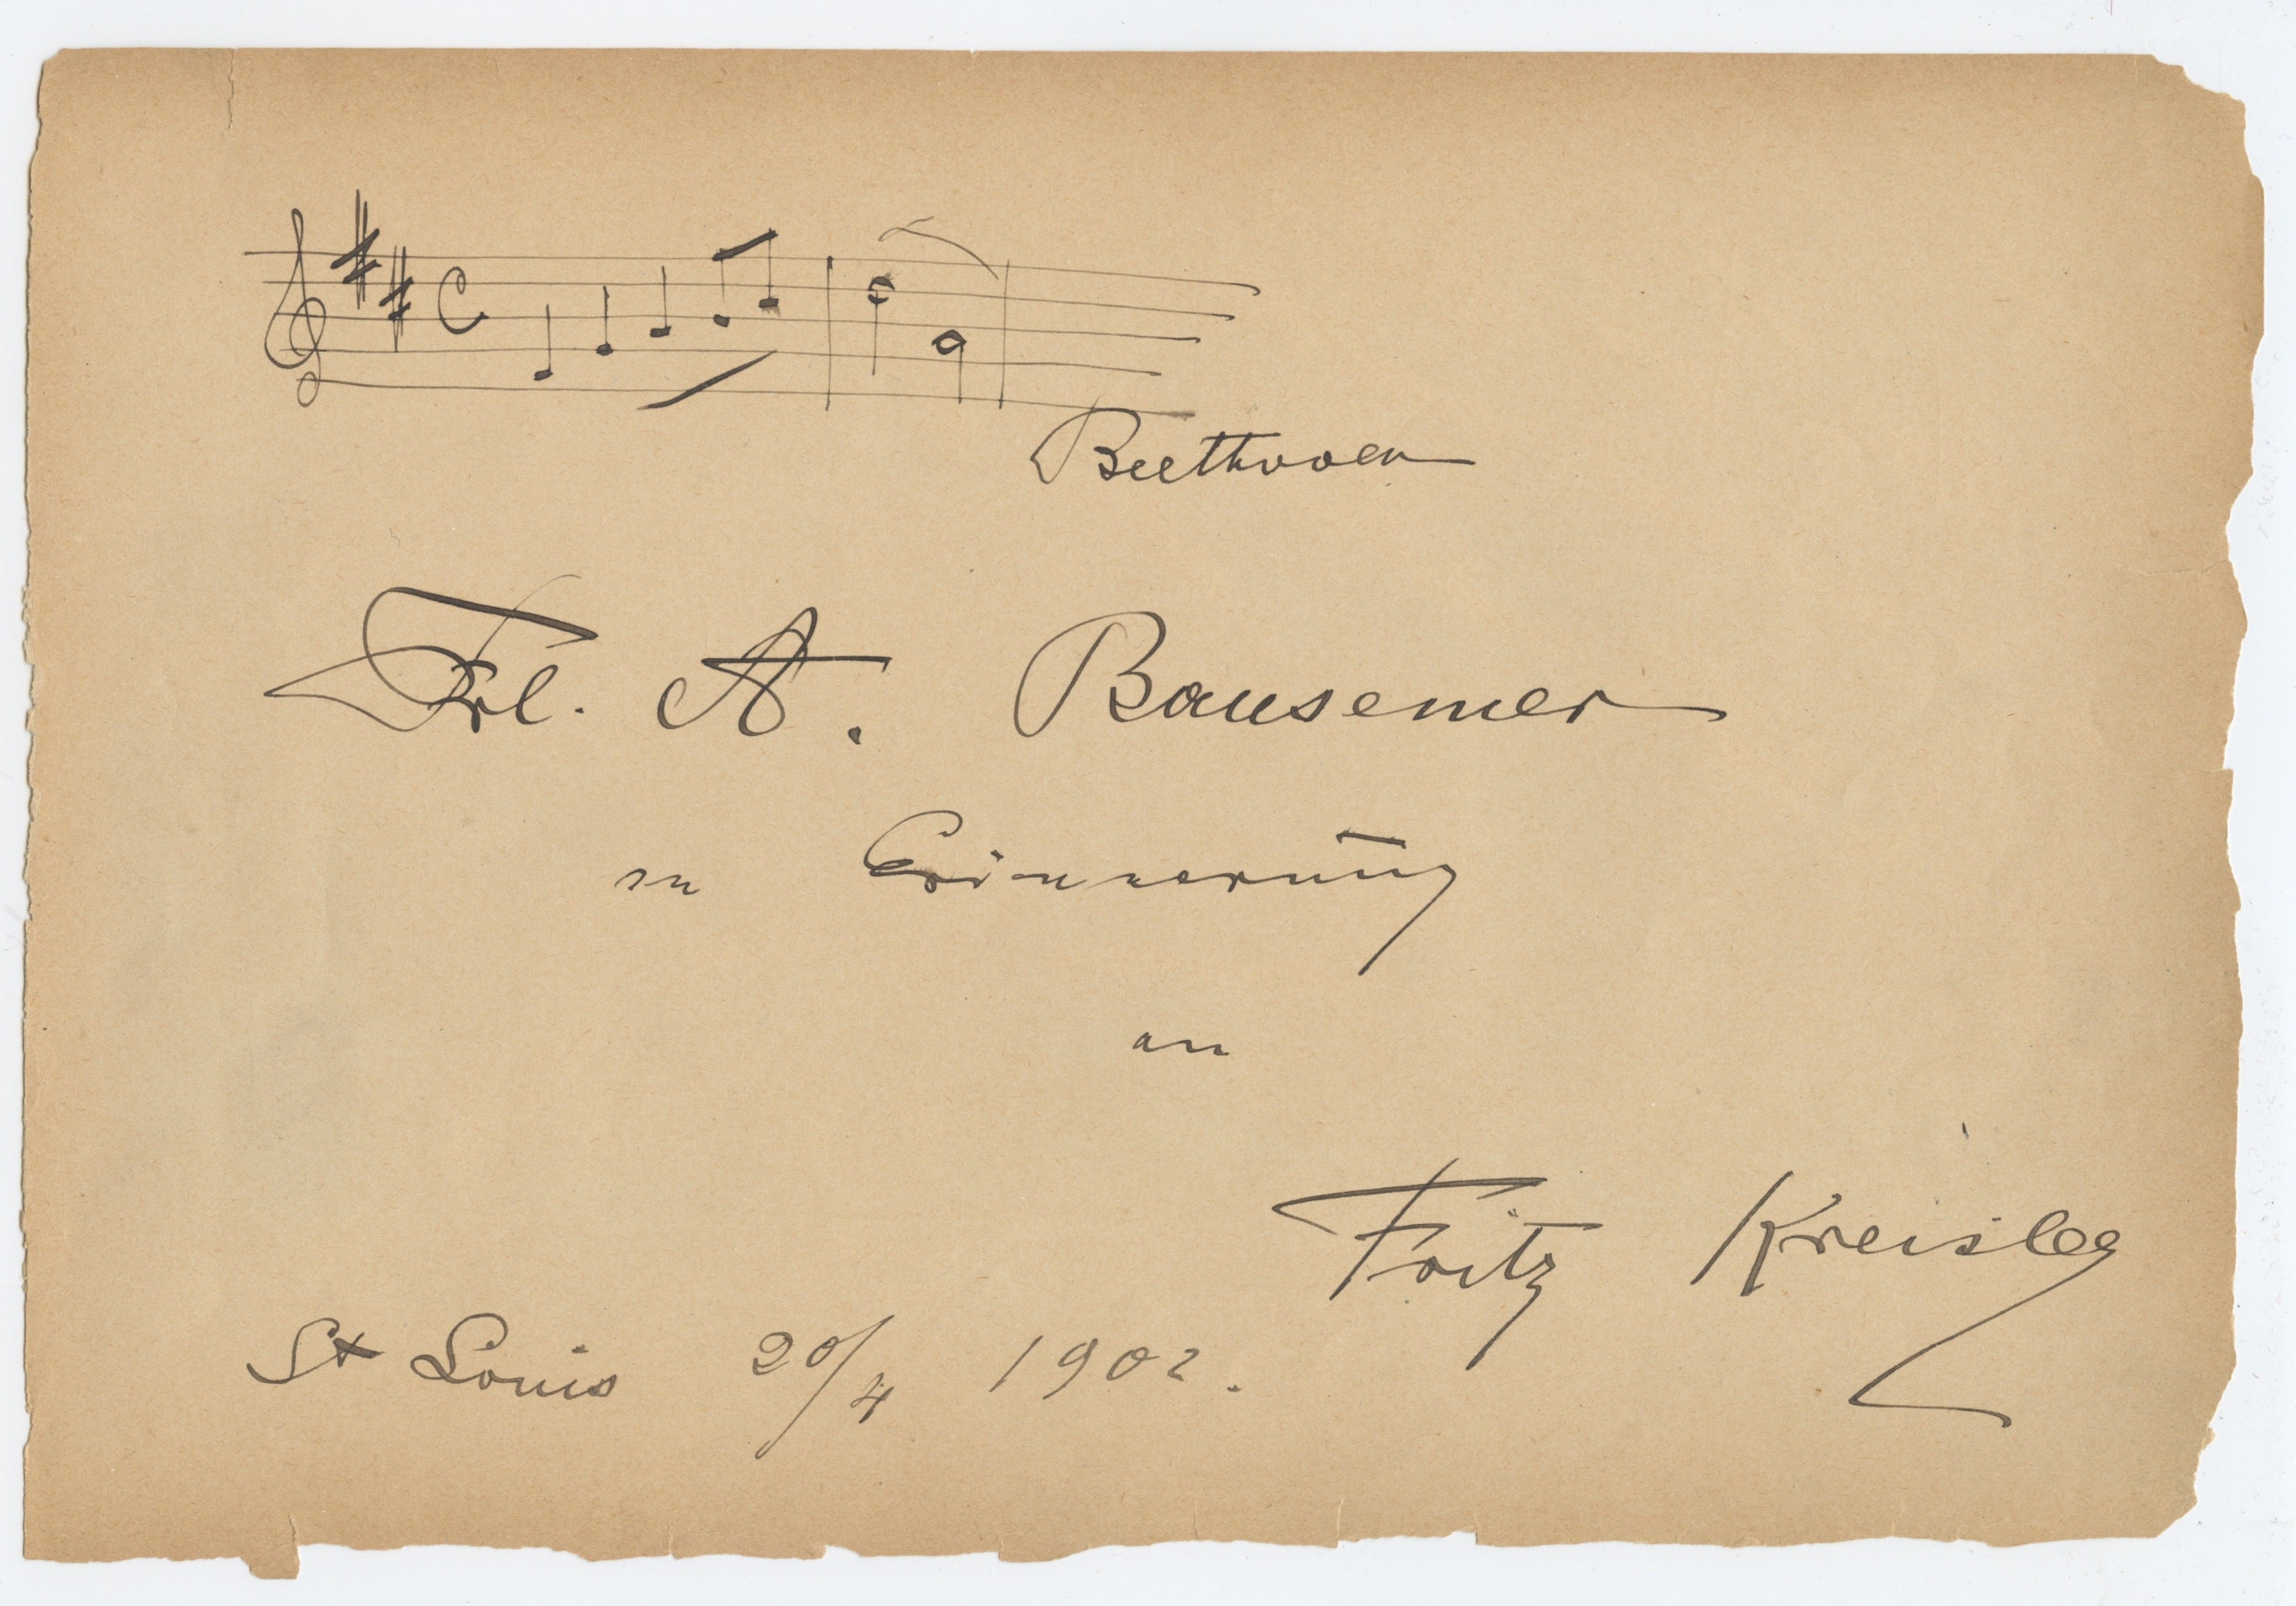 Beethoven
Frl. A. Bausemer
zu Erinnerung
an
Fritz Kreisler
St Louis 20/4 1902.